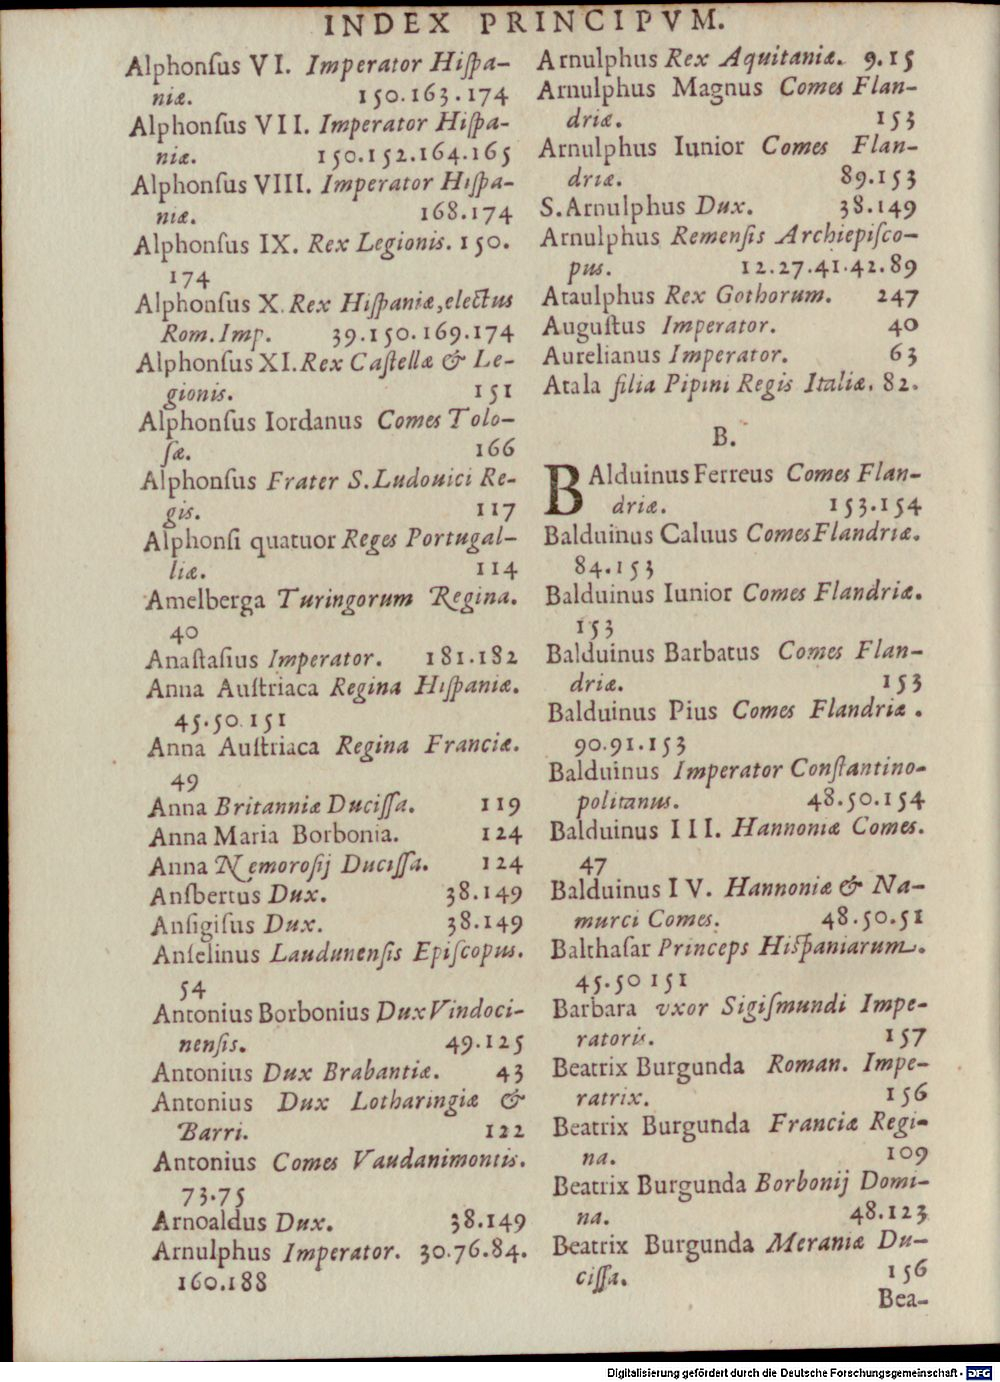 INDEX PRINCIPVM.
Alphonſus VI. Imperator Hiſpa-
niæ. 150.163.174
Alphonſus VII. Imperator Hiſpa-
niæ. 150.152.164.165
Alphonſus VIII. Imperator Hiſpa-
niæ. 168.174
Alphonſus IX. Rex Legionis. 150.
174
Alphonſus X. Rex Hiſpaniæ, electus
Rom. Imp. 39.150.169.174
Alphonſus XI. Rex Caſtellæ & Le-
gionis. 151
Alphonſus Iordanus Comes Tolo-
ſæ. 166
Alphonſus Frater S. Ludouici Re-
gis. 117
Alphonſi quatuor Reges Portugal-
liæ. 114
Amelberga Turingorum Regina.
40
Anaſtaſius Imperator. 181.182
Anna Auſtriaca Regina Hiſpaniæ.
45.50.151
Anna Auſtriaca Regina Franciæ.
49
Anna Britanniæ Duciſſa. 119
Anna Maria Borbonia. 124
Anna Nemoroſij Duciſſa. 124
Anſbertus Dux. 38.149
Anſigiſus Dux. 38.149
Anſelinus Laudunenſis Epiſcopus.
54
Antonius Borbonius Dux Vindoci-
nenſis. 49.125
Antonius Dux Brabantiæ. 43
Antonius Dux Lotharingiæ &
Barri. 122
Antonius Comes Vaudanimontis.
73.75
Arnoaldus Dux. 38.149
Arnulphus Imperator. 30.76.84.
160.188
Arnulphus Rex Aquitaniæ. 9.15
Arnulphus Magnus Comes Flan-
driæ. 153
Arnulphus Iunior Comes Flan-
driæ. 89.153
S. Arnulphus Dux. 38.149
Arnulphus Remenſis Archiepiſco-
pus. 12.27.41.42.89
Ataulphus Rex Gothorum. 247
Auguſtus Imperator. 40
Aurelianus Imperator. 63
Atala filia Pipini Regis Italiæ. 82.
B.
BAlduinus Ferreus Comes Flan-
driæ. 153.154
Balduinus Caluus Comes Flandriæ.
84.153
Balduinus Iunior Comes Flandriæ.
153
Balduinus Barbatus Comes Flan-
driæ. 153
Balduinus Pius Comes Flandriæ.
90.91.153
Balduinus Imperator Conſtantino-
politanus. 48.50.154
Balduinus III. Hannoniæ Comes.
47
Balduinus IV. Hannoniæ & Na-
murci Comes. 48.50.51
Balthaſar Princeps Hiſpaniarum.
45.50 151
Barbara vxor Sigiſmundi Impe-
ratoris. 157
Beatrix Burgunda Roman. Impe-
ratrix. 156
Beatrix Burgunda Franciæ Regi-
na. 109
Beatrix Burgunda Borbonij Domi-
na. 48.123
Beatrix Burgunda Meraniæ Du-
ciſſa. 156
Bea-
Digitalisierung gefördert durch die Deutsche Forschungsgemeinschaft - DFG